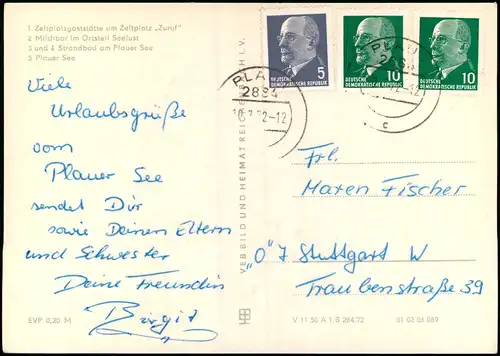 1 Zeltplatzgaststätte am Zeltplatz „Zuruf"
2 Milchbar im Ortsteil Seelust
3 und 4 Strandbad am Plauer See
5 Plauer See
Viele
Urlaubsgrüße
vom
Plauer See
sendet Dir
sowie Deinen Eltern
und Schwester
Deine Freundin
Birgit
EVP 0,20 M
VEB BILD UND HEIMAT REICHENBACH I. V.
5
DEUTSCHE
DEMOKRATISCHE REPUBLIK
10
DEUTSCHE
DEMOKRATISCHE REPUBLIK
10
DEUTSCHE
DEMOKRATISCHE REPUBLIK
PLAU
2864
-12
PLAU
-12
c
Frl.
Maren Fischer
„O" 7 Stuttgart W
Traubenstraße 39
V 11 50 A 1/B 284/72
01 03 05 089